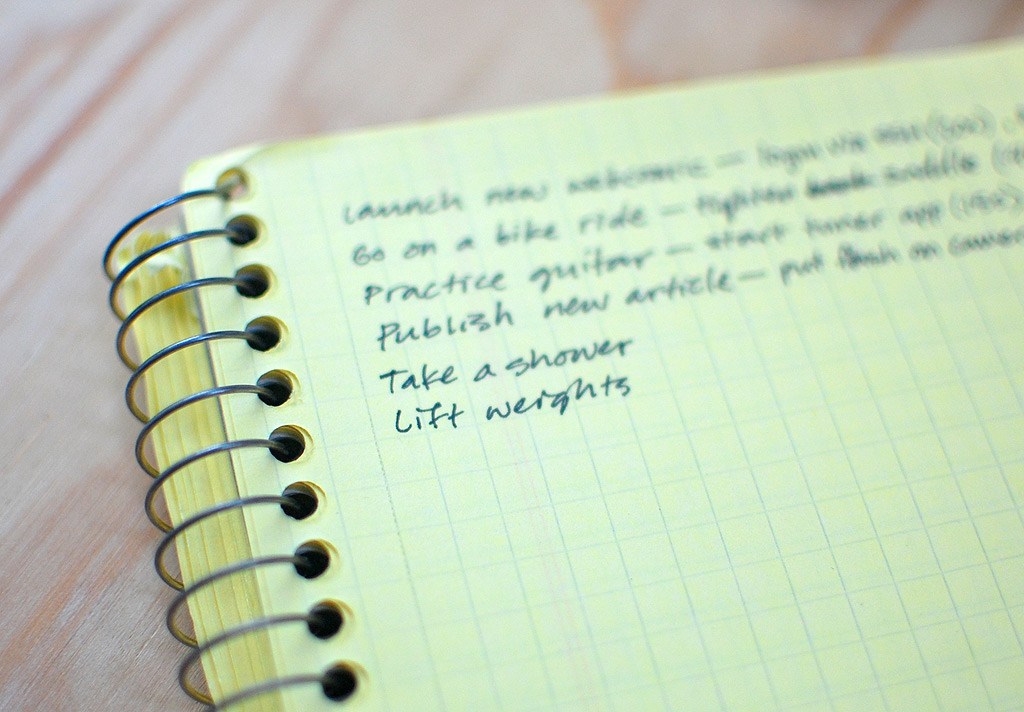 Launch new webcomic — login via
Go on a bike ride — tighten saddle
Practice guitar — start tuner app
Publish new article — put flash on camera
Take a shower
Lift weights